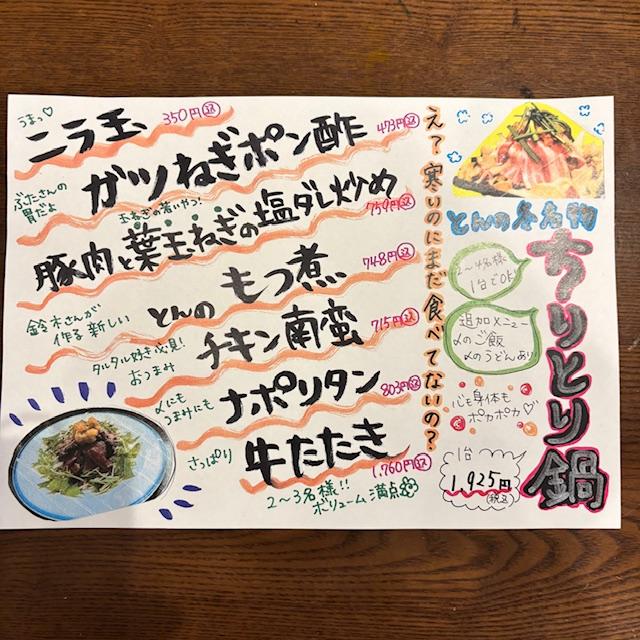 うまっ♡
ニラ玉 350円込
ガツねぎポン酢 473円込
ぶたさんの
胃だよ
玉ねぎの若いやつ!
豚肉と葉玉ねぎの塩ダレ炒め
759円込
とんの もつ煮 748円込
鈴木さんが
作る 新しい
チキン南蛮 715円込
タルタル好き必見!
おつまみ
ナポリタン 803円込
〆にも
つまみにも
牛たたき
さっぱり
1,760円込
2〜3名様!!
ボリューム満点
え?寒いのにまだ食べてないの?
とんの冬名物
ちりとり鍋
2〜4名様
1台でOK!
追加メニュー
〆のご飯
〆のうどんあり
心も身体も
ポカポカ♡
1台
1,925円
(税込)